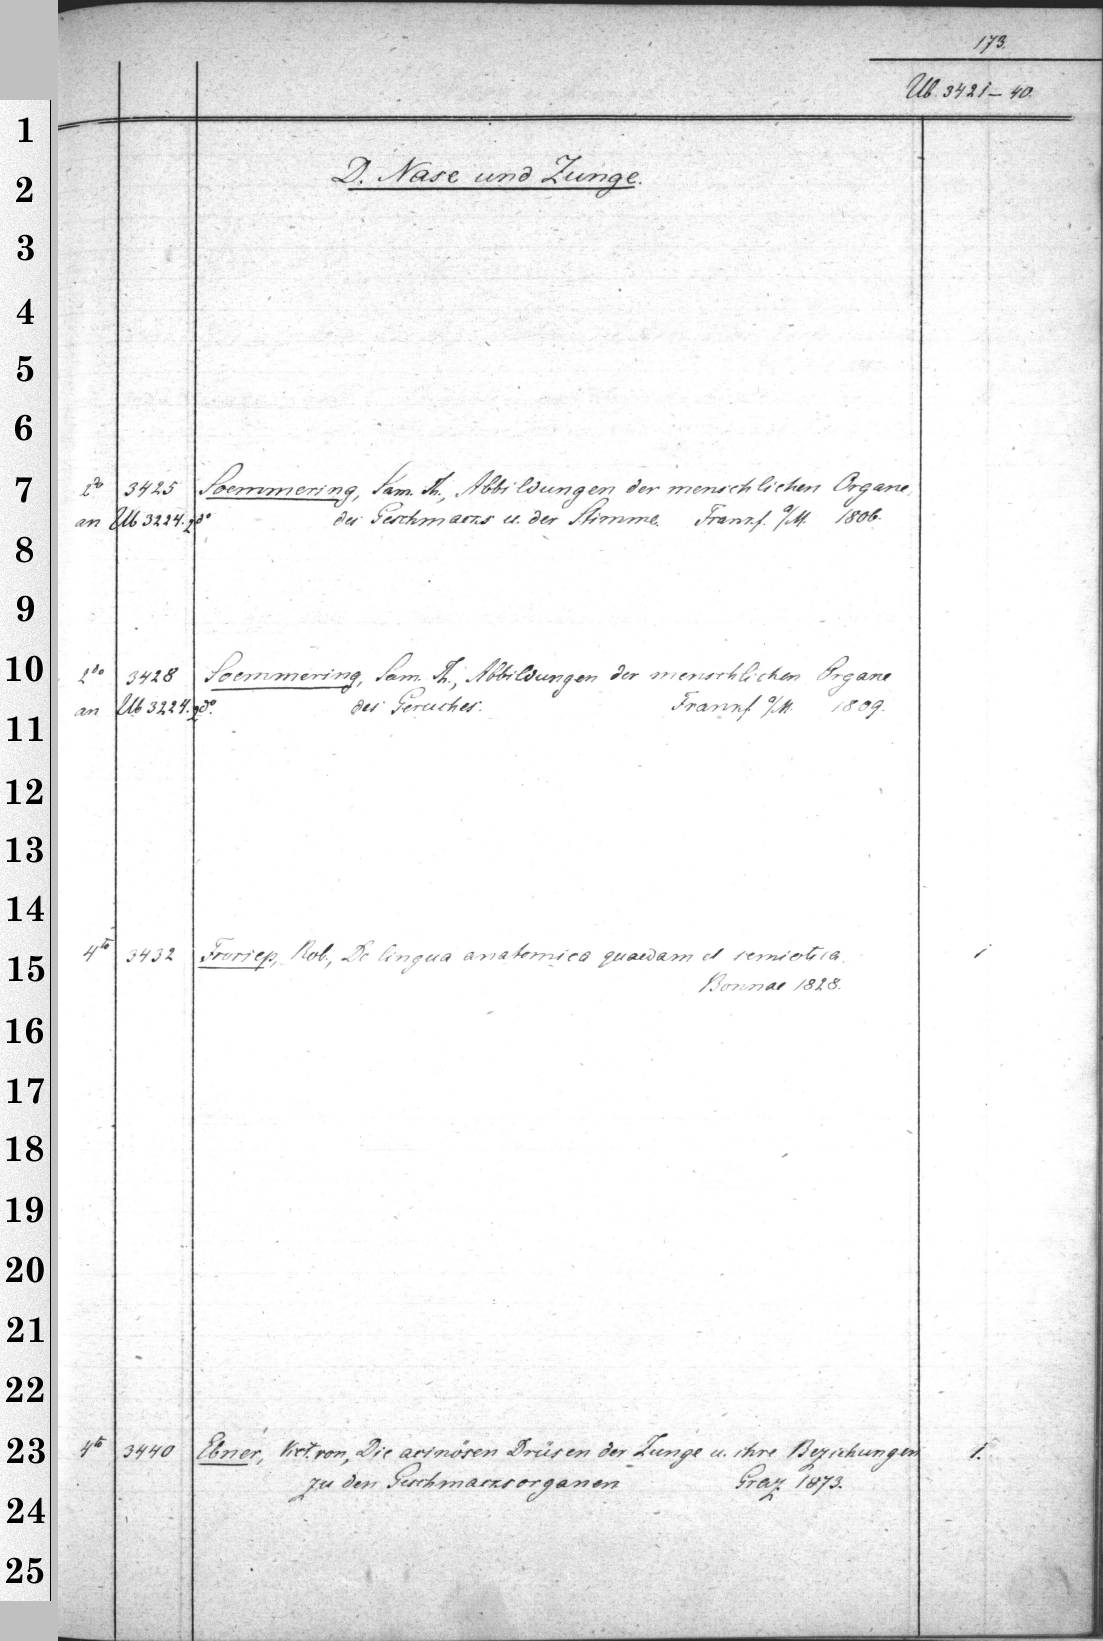 173.
Ub. 3421–40.
1
2
3
4
5
6
7
8
9
10
11
12
13
14
15
16
17
18
19
20
21
22
23
24
25
D. Nase und Zunge.
2do 3425 Soemmering, Sam. Th., Abbildungen der menschlichen Organe
an Ub 3224. 2do des Geschmacks u. der Stimme. Frankf. a/M. 1806.
2do 3428 Soemmering, Sam. Th., Abbildungen der menschlichen Organe
an Ub 3224. 2do. des Geruches. Frankf a/M. 1809.
4to 3432 Froriep, Rob., De lingua anatomica quaedam et semiotica. 1
Bonnae 1828.
4to 3440 Ebner, Vict. von, Die acinösen Drüsen der Zunge u. ihre Beziehungen 1.
zu den Geschmacksorganen Graz. 1873.